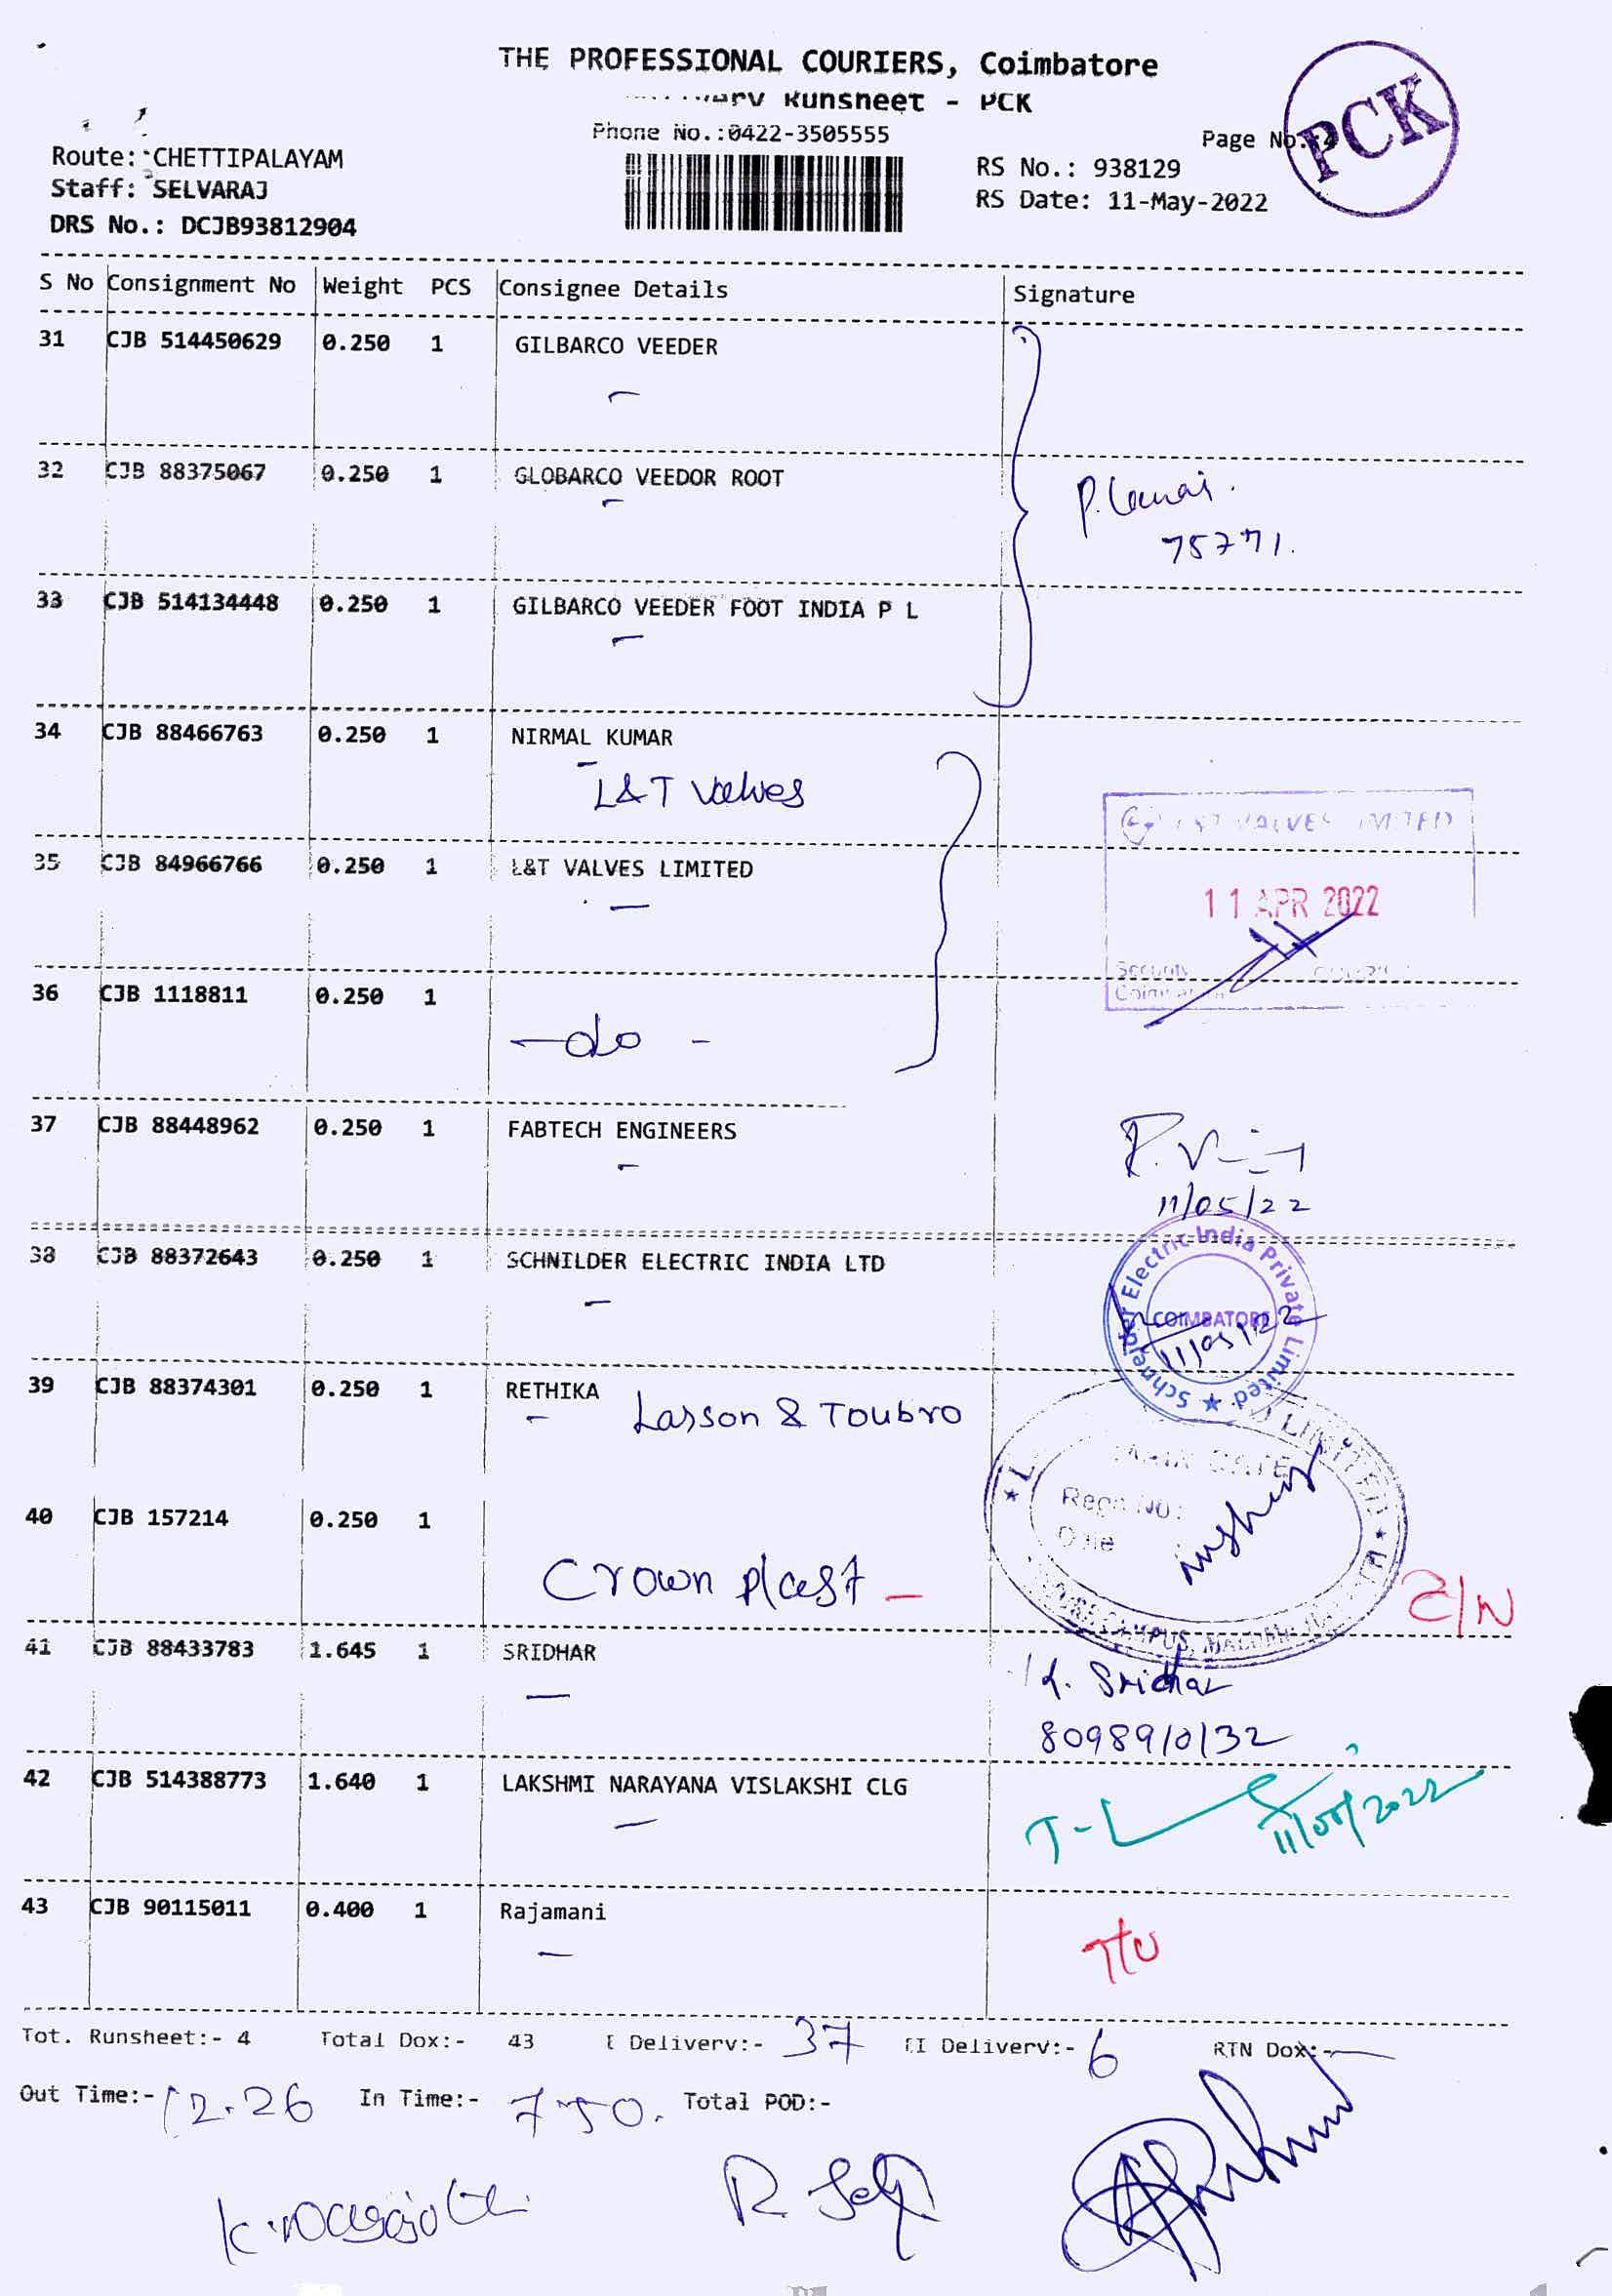 THE PROFESSIONAL COURIERS, Coimbatore
Runsheet - PCK
Phone No.:0422-3505555
PCK
Page No.:
Route: CHETTIPALAYAM
Staff: SELVARAJ
DRS No.: DCJB93812904
RS No.: 938129
RS Date: 11-May-2022
S No Consignment No Weight PCS Consignee Details Signature
31 CJB 514450629 0.250 1 GILBARCO VEEDER
32 CJB 88375067 0.250 1 GLOBARCO VEEDOR ROOT
75771.
33 CJB 514134448 0.250 1 GILBARCO VEEDER FOOT INDIA P L
34 CJB 88466763 0.250 1 NIRMAL KUMAR
L&T Valves
L&T VALVES LIMITED
35 CJB 84966766 0.250 1 L&T VALVES LIMITED
11 APR 2022
Security
36 CJB 1118811 0.250 1
-do-
37 CJB 88448962 0.250 1 FABTECH ENGINEERS
11/05/22
38 CJB 88372643 0.250 1 SCHNILDER ELECTRIC INDIA LTD
Schneider Electric India Private Limited
COIMBATORE
11/05/22
39 CJB 88374301 0.250 1 RETHIKA
Lasson & Toubro
LIMITED
MAIN GATE
Regn No:
Date
40 CJB 157214 0.250 1
Crown plast -
CAMPUS,
41 CJB 88433783 1.645 1 SRIDHAR
K. Sridhar
8098910132
42 CJB 514388773 1.640 1 LAKSHMI NARAYANA VISLAKSHI CLG
11/05/2022
43 CJB 90115011 0.400 1 Rajamani
Tot. Runsheet:- 4 Total Dox:- 43 I Delivery:- 37 II Delivery:- 6 RTN Dox:-
Out Time:- 12.26 In Time:- 7.50. Total POD:-